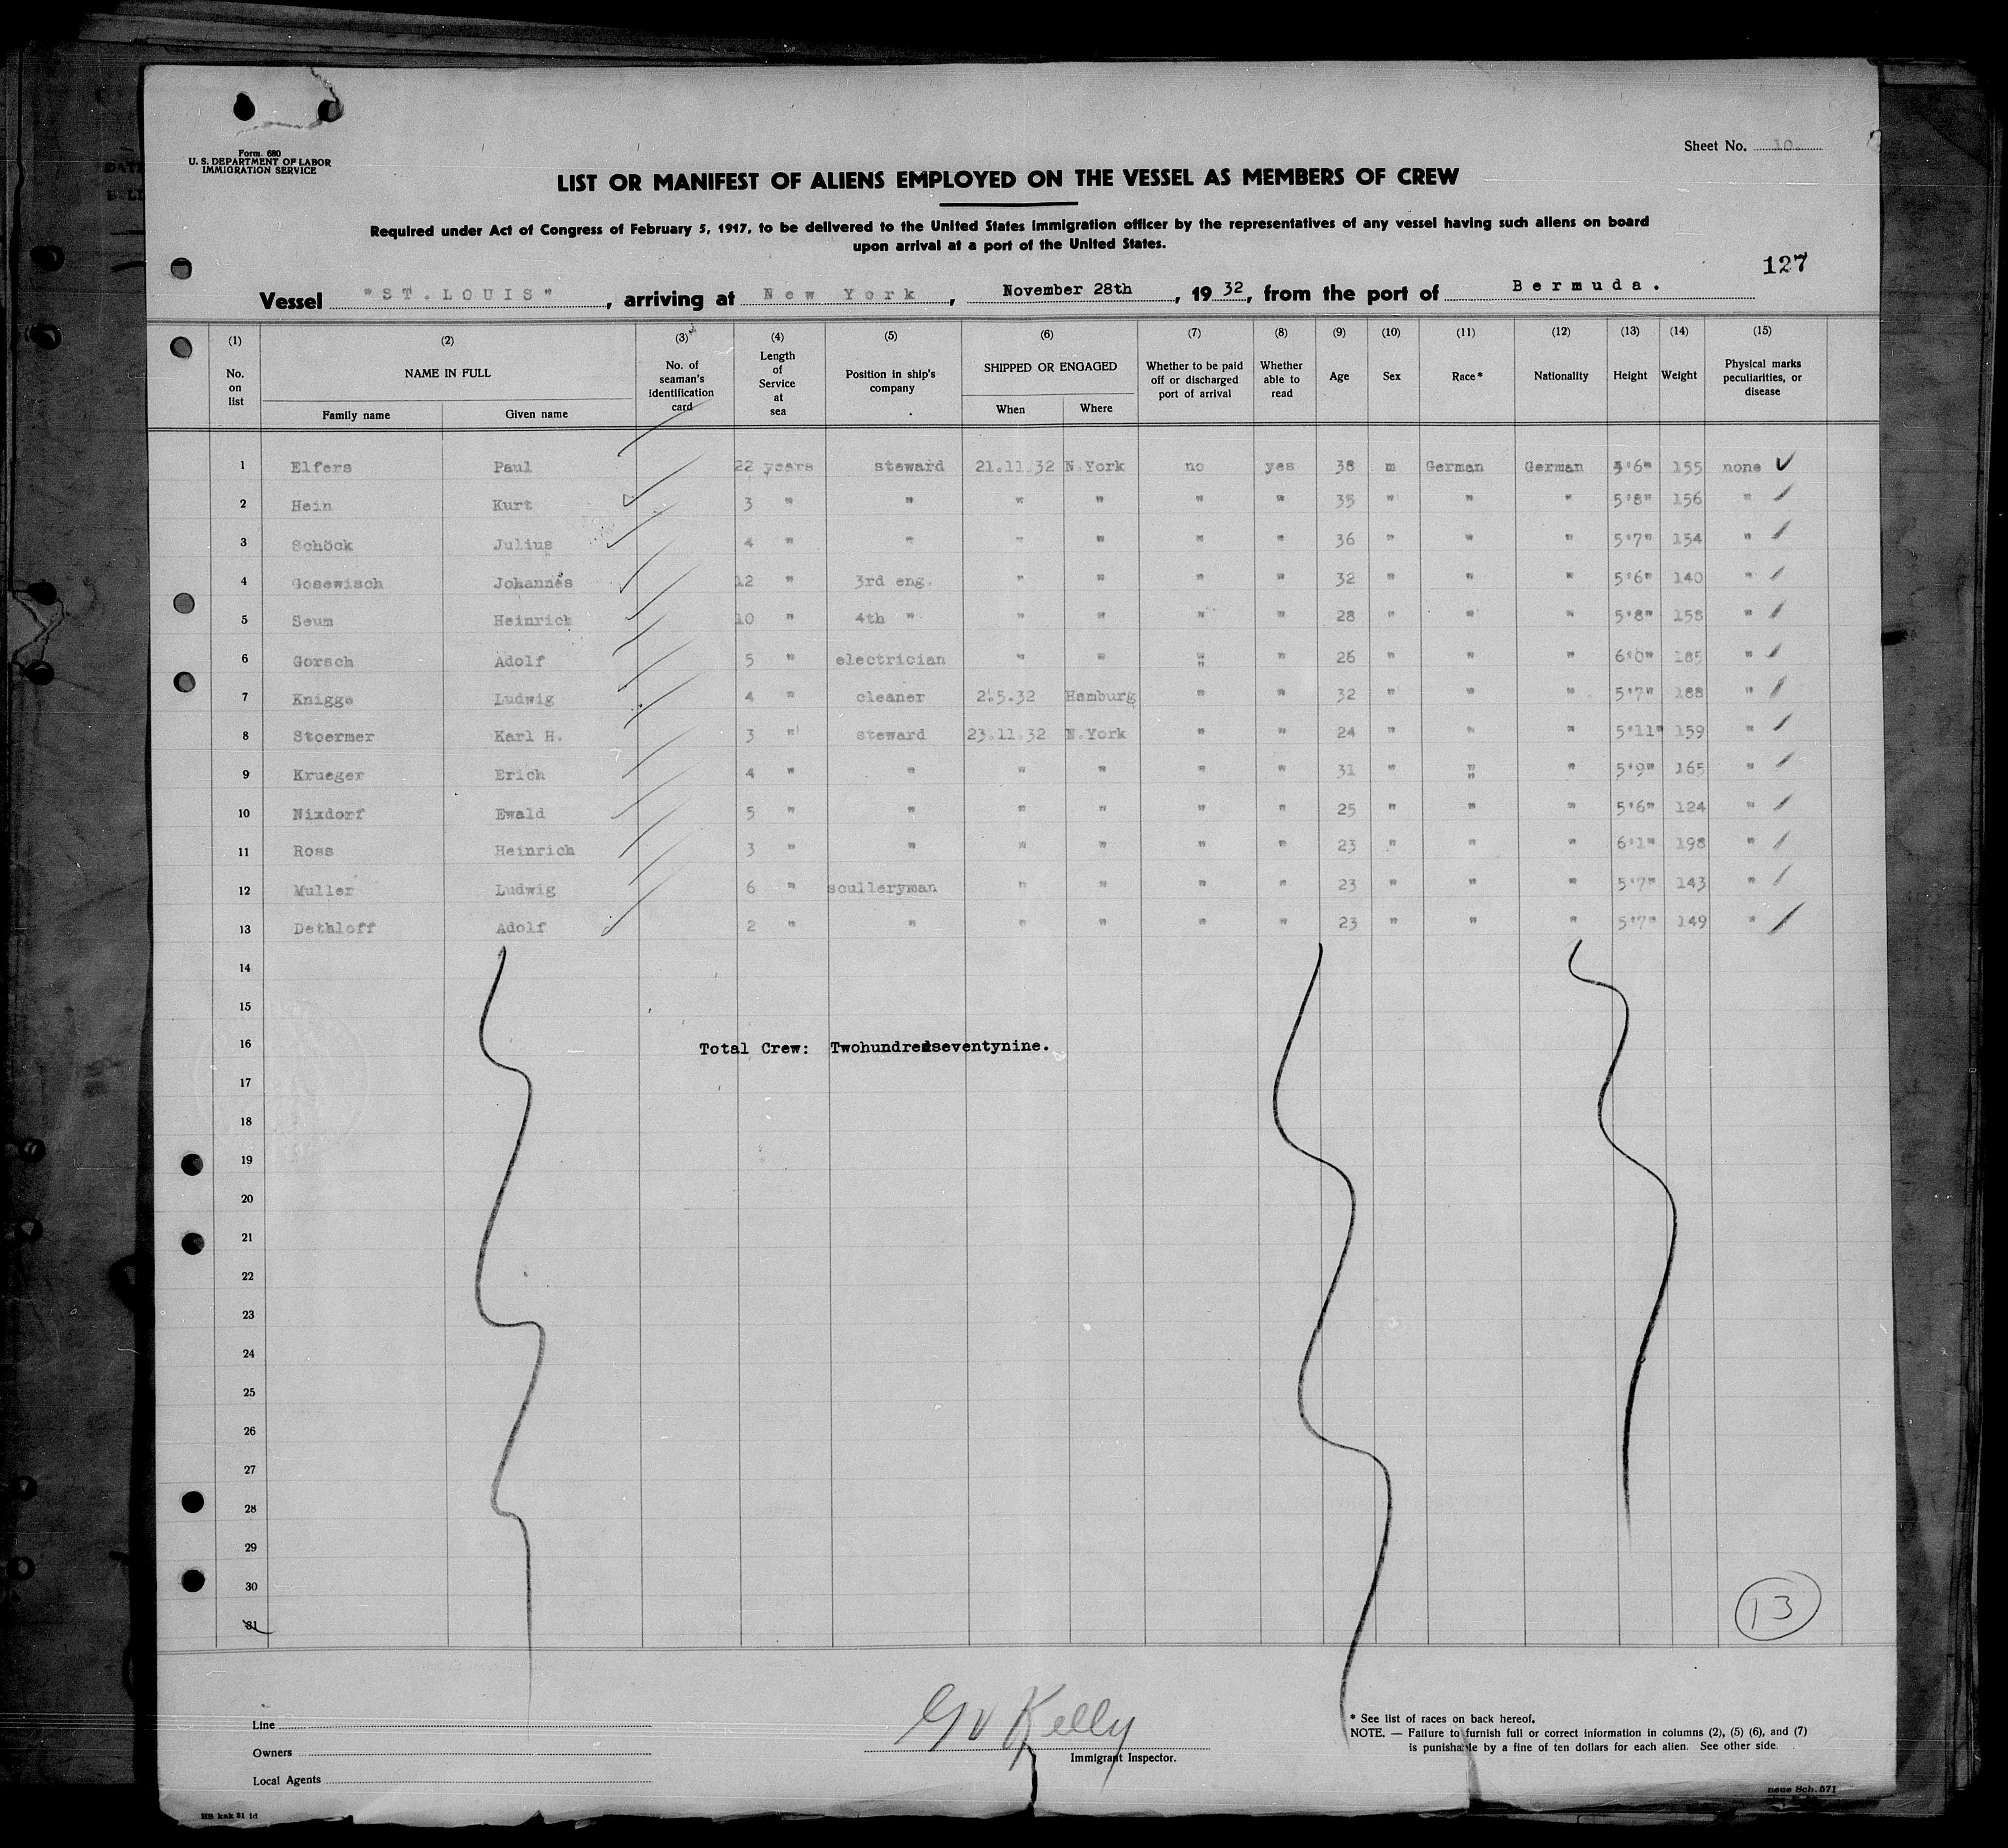 Form 680
U. S. DEPARTMENT OF LABOR
IMMIGRATION SERVICE
Sheet No. 10.
LIST OR MANIFEST OF ALIENS EMPLOYED ON THE VESSEL AS MEMBERS OF CREW
Required under Act of Congress of February 5, 1917, to be delivered to the United States immigration officer by the representatives of any vessel having such aliens on board
upon arrival at a port of the United States.
127
Vessel "ST.LOUIS", arriving at New York, November 28th, 1932, from the port of Bermuda.
(1) (2) (3) (4) (5) (6) (7) (8) (9) (10) (11) (12) (13) (14) (15)
No. on list NAME IN FULL Family name Given name No. of seaman's identification card Length of Service at sea Position in ship's company SHIPPED OR ENGAGED When Where Whether to be paid off or discharged port of arrival Whether able to read Age Sex Race* Nationality Height Weight Physical marks peculiarities, or disease
1 Elfers Paul 22 years steward 21.11.32 N.York no yes 38 m German German 5'6" 155 none
2 Hein Kurt 3 " " " " " " 35 " " " 5'8" 156 "
3 Schöck Julius 4 " " " " " " 36 " " " 5'7" 154 "
4 Gosewisch Johannes 12 " 3rd eng. " " " " 32 " " " 5'6" 140 "
5 Seum Heinrich 10 " 4th " " " " " 28 " " " 5'8" 158 "
6 Gorsch Adolf 5 " electrician " " " " 26 " " " 6'0" 185 "
7 Knigge Ludwig 4 " cleaner 2.5.32 Hamburg " " 32 " " " 5'7" 188 "
8 Stoermer Karl H. 3 " steward 23.11.32 N.York " " 24 " " " 5'11" 159 "
9 Krueger Erich 4 " " " " " " 31 " " " 5'9" 165 "
10 Nixdorf Ewald 5 " " " " " " 25 " " " 5'6" 124 "
11 Ross Heinrich 3 " " " " " " 23 " " " 6'1" 198 "
12 Muller Ludwig 6 " sculleryman " " " " 23 " " " 5'7" 143 "
13 Dethloff Adolf 2 " " " " " " 23 " " " 5'7" 149 "
14
15
16 Total Crew: Twohundredseventynine.
17
18
19
20
21
22
23
24
25
26
27
28
29
30
31
13
Line
Owners
Local Agents
GV Kelly
Immigrant Inspector.
* See list of races on back hereof.
NOTE. — Failure to furnish full or correct information in columns (2), (5) (6), and (7)
is punishable by a fine of ten dollars for each alien. See other side.
HB kak 31 id
neue Sch. 571